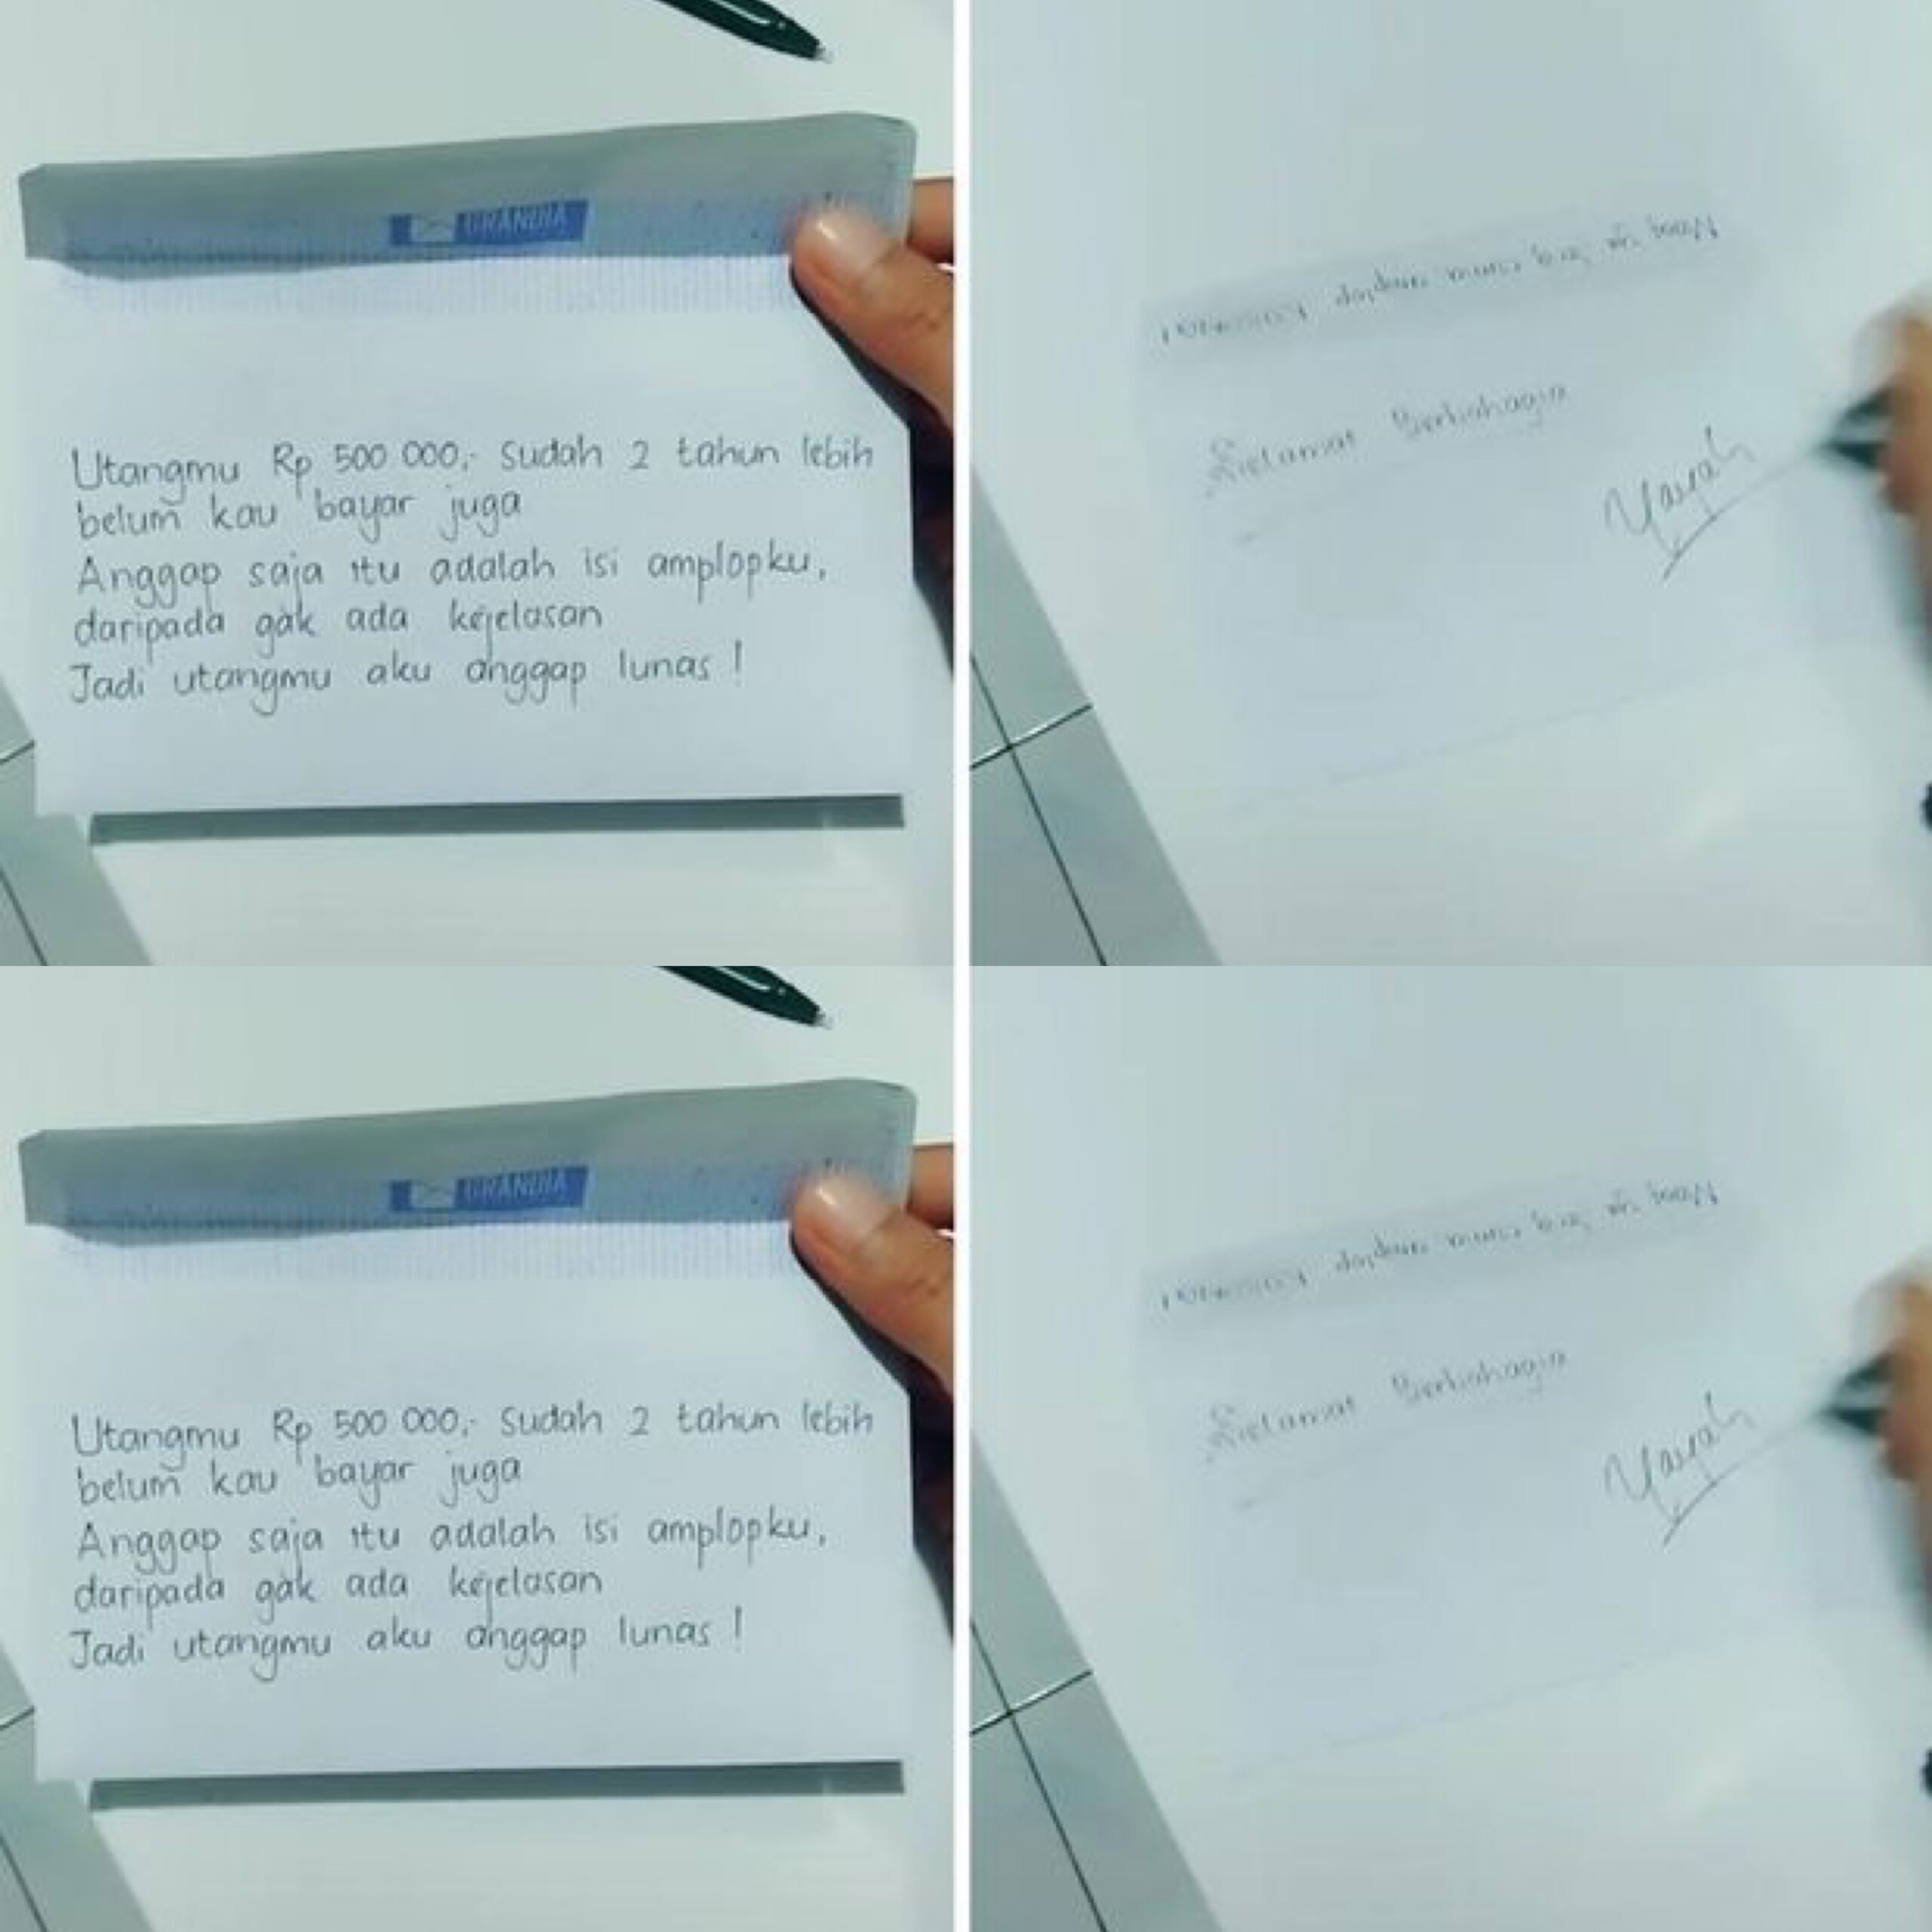 GRANDIA
Utangmu Rp 500 000,- sudah 2 tahun lebih
belum kau bayar juga
Anggap saja itu adalah isi amplopku,
daripada gak ada kejelasan
Jadi utangmu aku anggap lunas !
Selamat Berbahagia
Yasyah
GRANDIA
Utangmu Rp 500 000,- sudah 2 tahun lebih
belum kau bayar juga
Anggap saja itu adalah isi amplopku,
daripada gak ada kejelasan
Jadi utangmu aku anggap lunas !
Selamat Berbahagia
Yasyah